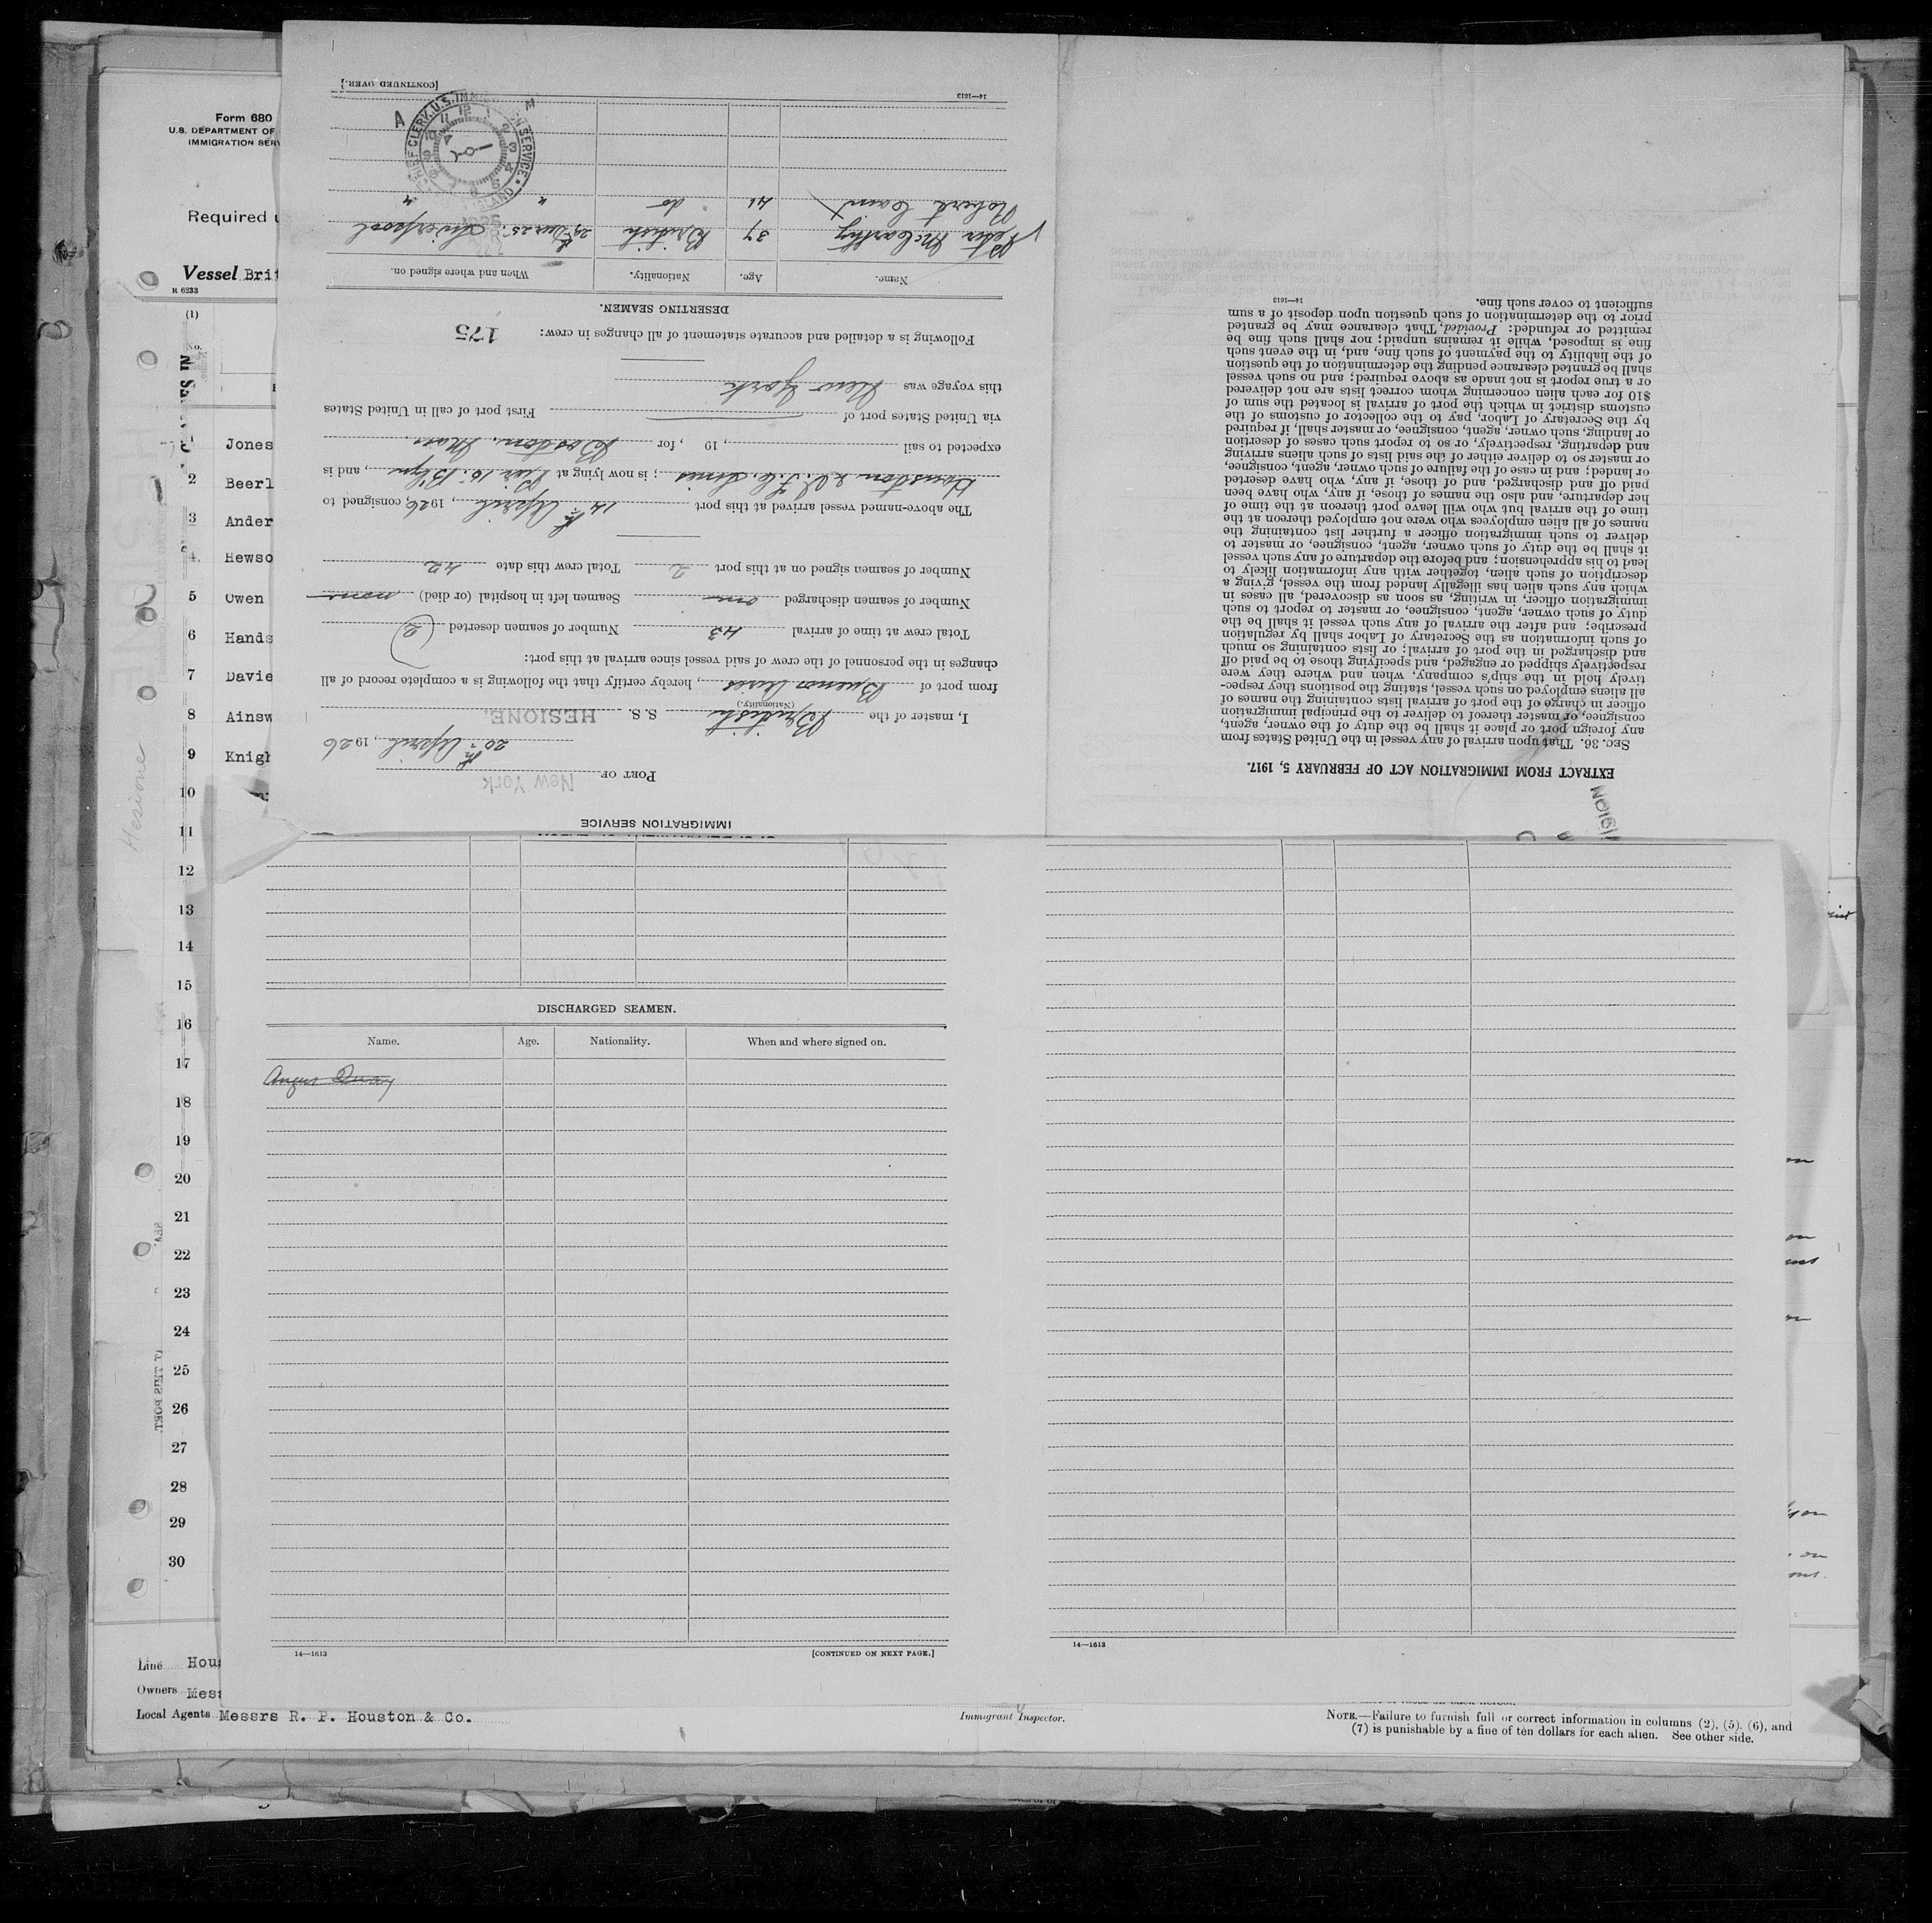 Form 680
U.S. DEPARTMENT OF
IMMIGRATION SERV
Required
Vessel Brit
R 6233
(1)
No.
1 Jones
2 Beerl
3 Ander
4 Hewso
5 Owen
6 Hands
7 Davie
8 Ainsw
9 Knigh
10
11
12
13
14
15
16
17
18
19
20
21
22
23
24
25
26
27
28
29
30
Hesione
Line Hous
Owners Mess
Local Agents Messrs R. P. Houston & Co.
Immigrant Inspector.
NOTE.—Failure to furnish full or correct information in columns (2), (5), (6), and
(7) is punishable by a fine of ten dollars for each alien. See other side.
IMMIGRATION SERVICE
PORT OF New York
20th April, 1926
I, master of the British S. S. HESIONE,
(Nationality.)
from port of Buenos Aires, hereby certify that the following is a complete record of all
changes in the personnel of the crew of said vessel since arrival at this port:
Total crew at time of arrival 43 Number of seamen deserted 2
Number of seamen discharged one Seamen left in hospital (or died) none
Number of seamen signed on at this port 2 Total crew this date 42
The above-named vessel arrived at this port 14th April, 1926, consigned to
Houston Lines; is now lying at Pier 16 B'lyn, and is
expected to sail , 19 , for Boston, Mass.
via United States port of First port of call in United States
this voyage was New York
Following is a detailed and accurate statement of all changes in crew: 175
DESERTING SEAMEN.
Name. Age. Nationality. When and where signed on.
Peter McCarthy 37 British 29th Decr 25, Liverpool
Robert 41 do " "
CHIEF CLERK, U.S. IMMIGRATION SERVICE
14—1613 [CONTINUED OVER.]
EXTRACT FROM IMMIGRATION ACT OF FEBRUARY 5, 1917.
SEC. 36. That upon arrival of any vessel in the United States from
any foreign port or place it shall be the duty of the owner, agent,
consignee, or master thereof to deliver to the principal immigration
officer in charge of the port of arrival lists containing the names of
all aliens employed on such vessel, stating the positions they respec-
tively hold in the ship's company, when and where they were
respectively shipped or engaged, and specifying those to be paid off
and discharged in the port of arrival; or lists containing so much
of such information as the Secretary of Labor shall by regulation
prescribe; and after the arrival of any such vessel it shall be the
duty of such owner, agent, consignee, or master to report to such
immigration officer, in writing, as soon as discovered, all cases in
which any such alien has illegally landed from the vessel, giving a
description of such alien, together with any information likely to
lead to his apprehension; and before the departure of any such vessel
it shall be the duty of such owner, agent, consignee, or master to
deliver to such immigration officer a further list containing the
names of all alien employees who were not employed thereon at the
time of the arrival but who will leave port thereon at the time of
her departure, and also the names of those, if any, who have been
paid off and discharged, and of those, if any, who have deserted
or landed; and in case of the failure of such owner, agent, consignee,
or master so to deliver either of the said lists of such aliens arriving
and departing, respectively, or so to report such cases of desertion
or landing, such owner, agent, consignee, or master shall, if required
by the Secretary of Labor, pay to the collector of customs of the
customs district in which the port of arrival is located the sum of
$10 for each alien concerning whom correct lists are not delivered
or a true report is not made as above required; and no such vessel
shall be granted clearance pending the determination of the question
of the liability to the payment of such fine, and, in the event such
fine is imposed, while it remains unpaid; nor shall such fine be
remitted or refunded: Provided, That clearance may be granted
prior to the determination of such question upon deposit of a sum
sufficient to cover such fine.
14—1613
DISCHARGED SEAMEN.
Name. Age. Nationality. When and where signed on.
Angus
14—1613 [CONTINUED ON NEXT PAGE.]
14—1613